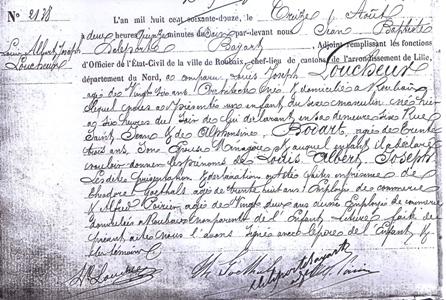 N° 2178
L'an mil huit cent soixante-douze, le Treize Août
à deux heures minutes du Soir par-devant nous Jean Baptiste
Louis Albert Joseph
Loucheur
Deleporte Bayart Adjoint remplissant les fonctions
d'Officier de l'État-Civil de la ville de Roubaix, chef-lieu de canton de l'arrondissement de Lille,
département du Nord, a comparu Joseph Loucheur
âgé de Vingt six ans, né & domicilié à Roubaix
lequel nous a présenté un enfant du sexe masculin né hier
à six heures du soir de lui déclarant en sa demeure Rue
Saint Jean & de Alphonsine Bodart, âgée de trente
trois ans, Son épouse Ménagère & auquel enfant il a déclaré
vouloir donner les prénoms de Louis Albert Joseph
Lesdites présentation & déclaration ont été faites en présence de
Théodore âgé de trente huit ans Employé de commerce
& Alfred Poirier âgé de Vingt deux ans Employé de commerce
domiciliés à Roubaix de l'Enfant Lecture faite du
présent acte nous l'avons signé avec le père de l'Enfant &
les témoins